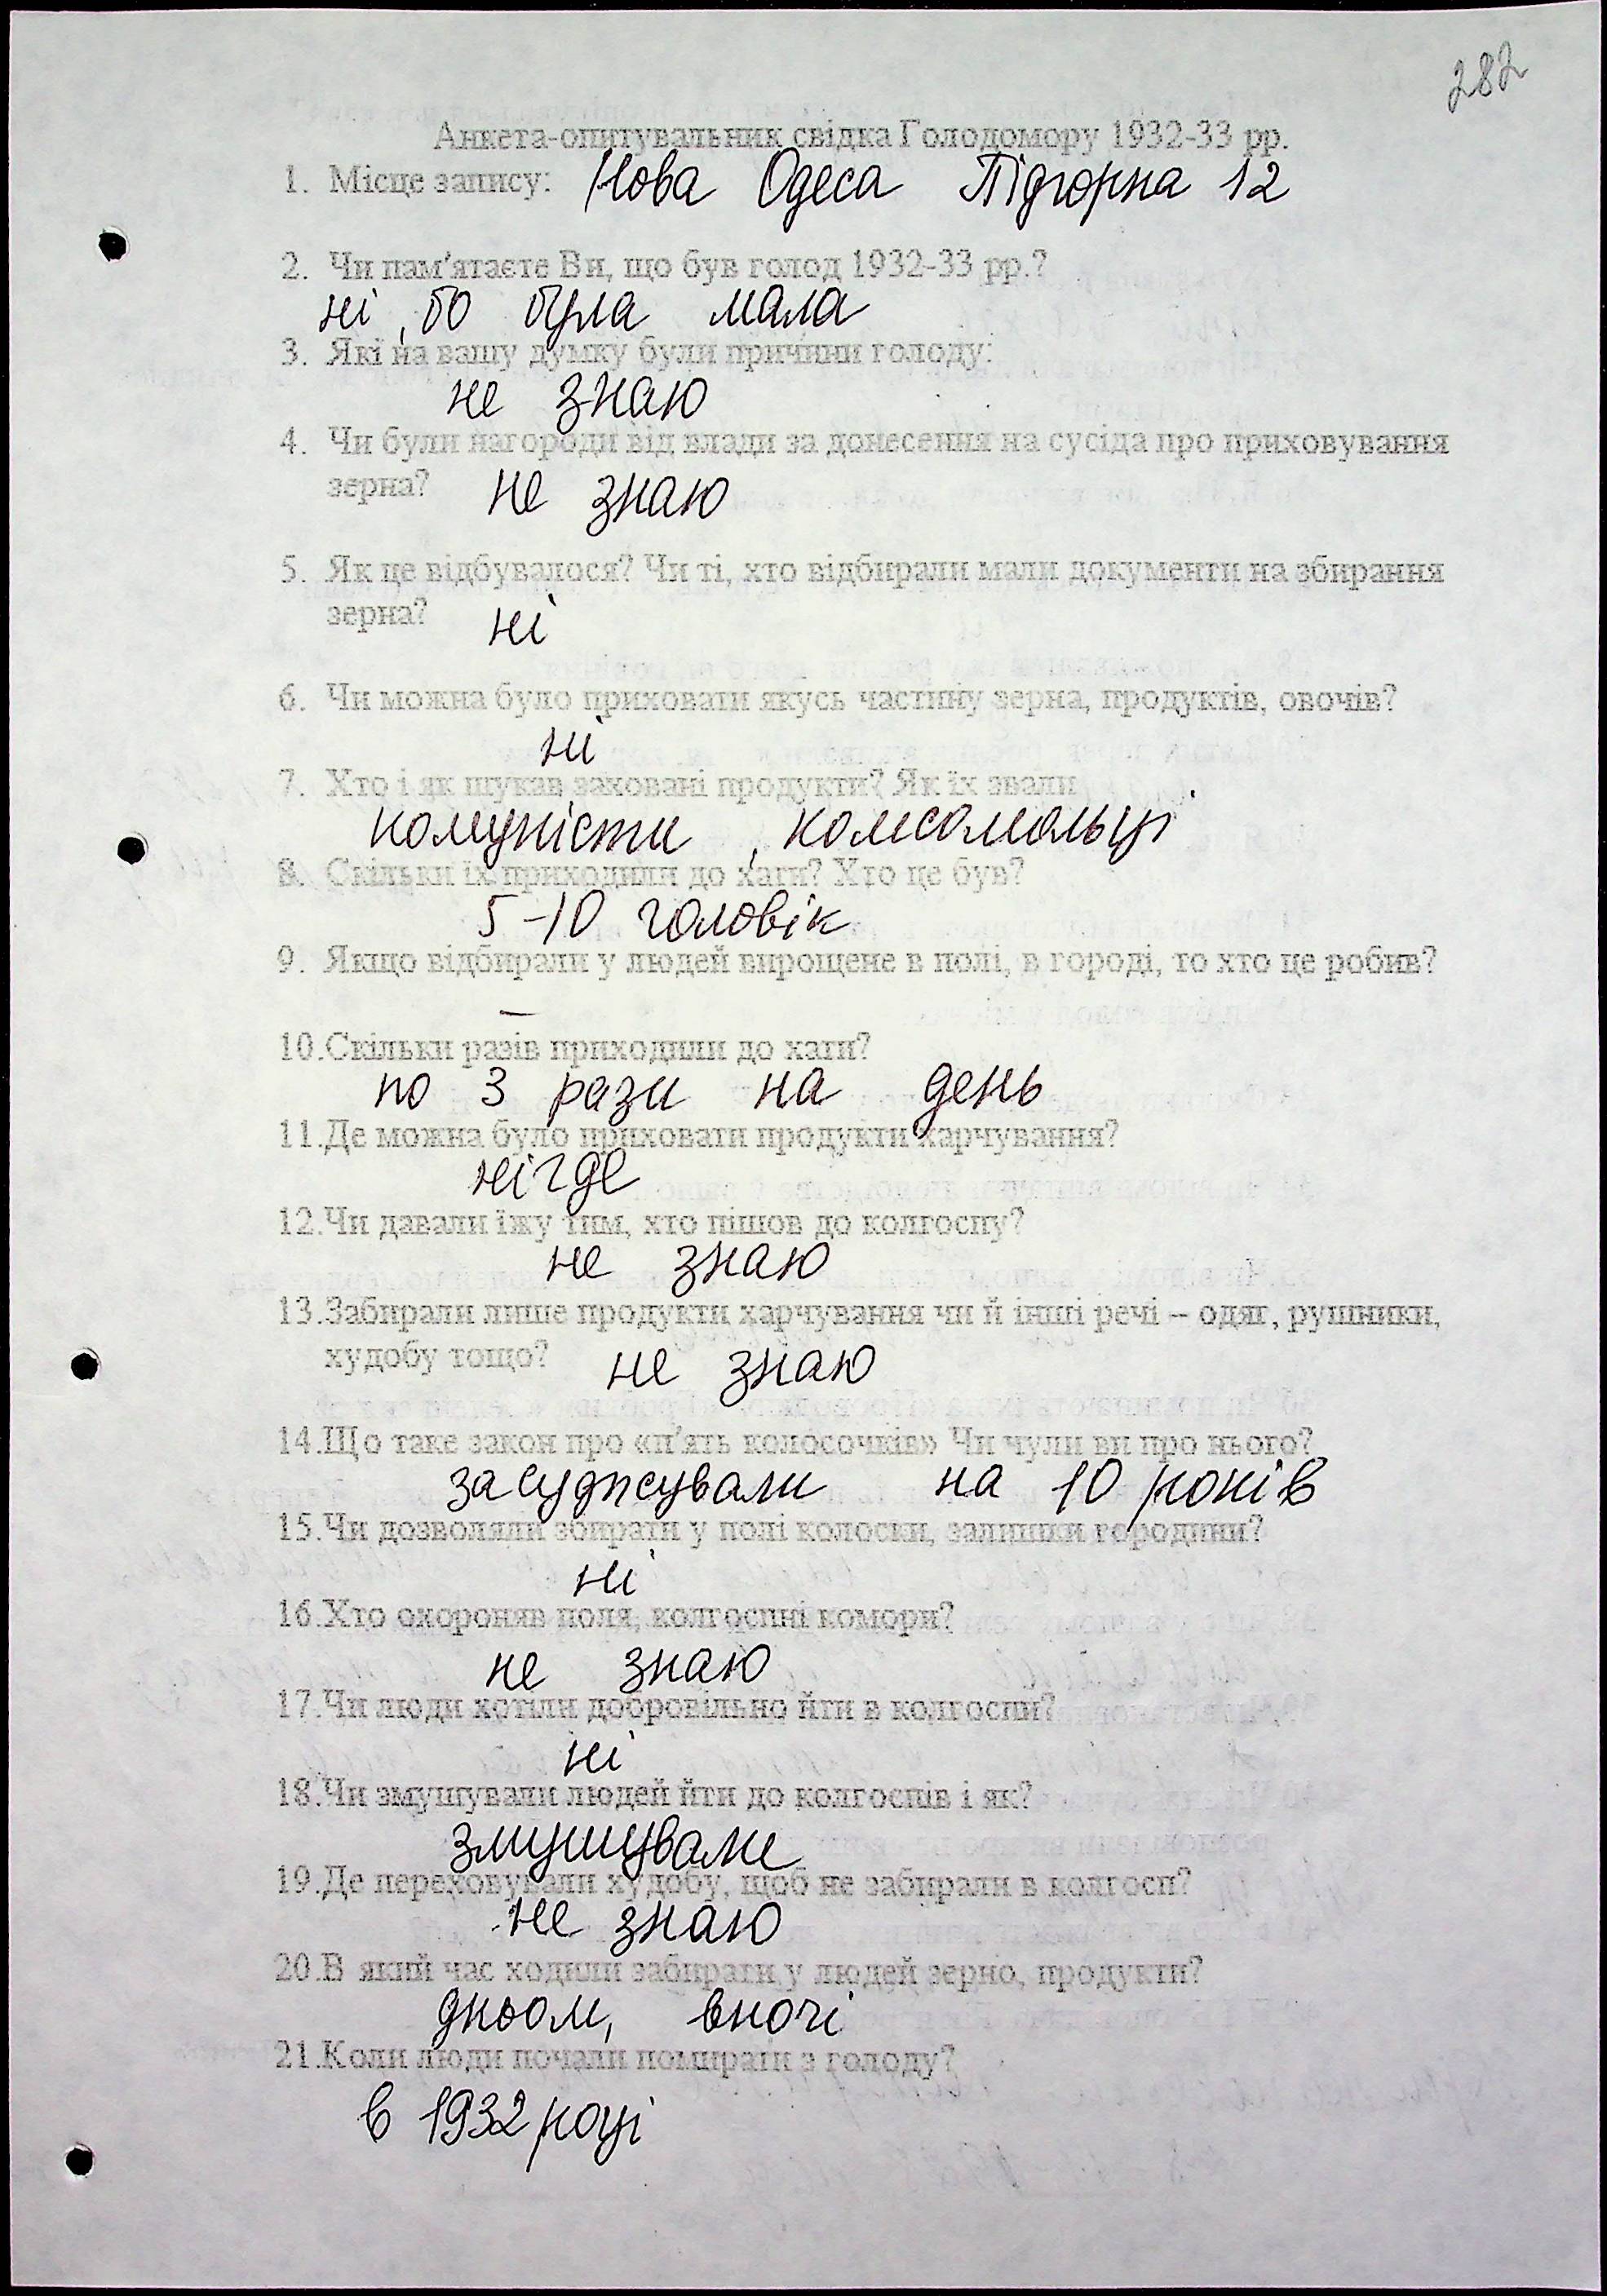 282
Анкета-опитувальник свідка Голодомору 1932-33 рр.
1. Місце запису: Нова Одеса Підгорна 12
2. Чи пам'ятаєте Ви, що був голод 1932-33 рр.?
ні, бо була мала
3. Які на вашу думку були причини голоду:
не знаю
4. Чи були нагороди від влади за донесення на сусіда про приховування
зерна? не знаю
5. Як це відбувалося? Чи ті, хто відбирали мали документи на збирання
зерна? ні
6. Чи можна було приховати якусь частину зерна, продуктів, овочів?
ні
7. Хто і як шукав заховані продукти? Як їх звали
комуністи, комсомольці
8. Скільки їх приходили до хати? Хто це був?
5-10 чоловік
9. Якщо відбирали у людей вирощене в полі, в городі, то хто це робив?
–
10.Скільки разів приходили до хати?
по 3 рази на день
11.Де можна було приховати продукти харчування?
нігде
12.Чи давали їжу тим, хто пішов до колгоспу?
не знаю
13.Забирали лише продукти харчування чи й інші речі – одяг, рушники,
худобу тощо? не знаю
14.Що таке закон про «п'ять колосочків» Чи чули ви про нього?
засуджували на 10 років
15.Чи дозволяли збирати у полі колоски, залишки городини?
ні
16.Хто охороняв поля, колгоспні комори?
не знаю
17.Чи люди хотіли добровільно йти в колгоспи?
ні
18.Чи змушували людей йти до колгоспів і як?
змушували
19.Де переховували худобу, щоб не забирали в колгосп?
не знаю
20.В який час ходили забирати у людей зерно, продукти?
дньом, вночі
21.Коли люди почали помирати з голоду?
в 1932 році